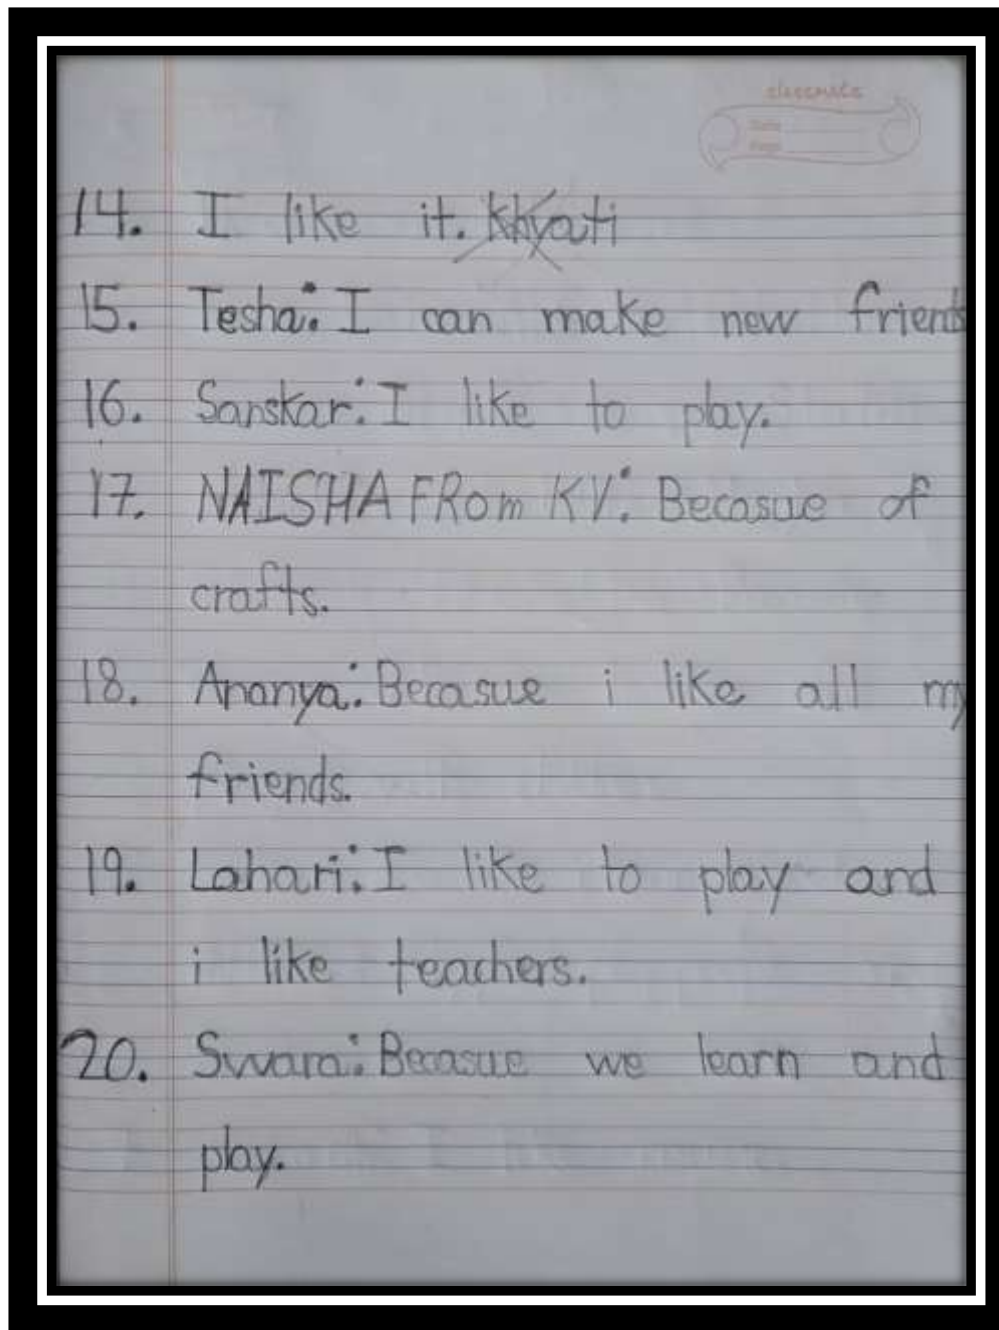 classmate
Date
Page
14. I like it. Khyati
15. Tesha: I can make new friends
16. Sanskar: I like to play.
17. NAISHA FRom KV: Becasue of
crafts.
18. Ananya: Becasue i like all my
friends.
19. Lahari: I like to play and
i like teachers.
20. Swara: Becasue we learn and
play.